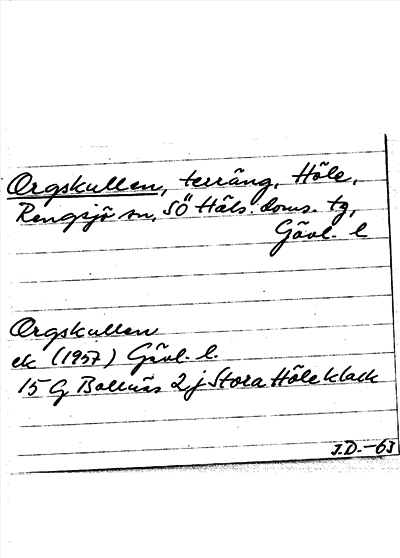 Orgskullen, terräng, Höle,
Rengsjö sn, SÖ Häls. doms. tg,
Gävl. l
Orgskullen
ek (1957) Gävl. l.
15 G Bollnäs 2 j Stora Höleklack
J.D.-63